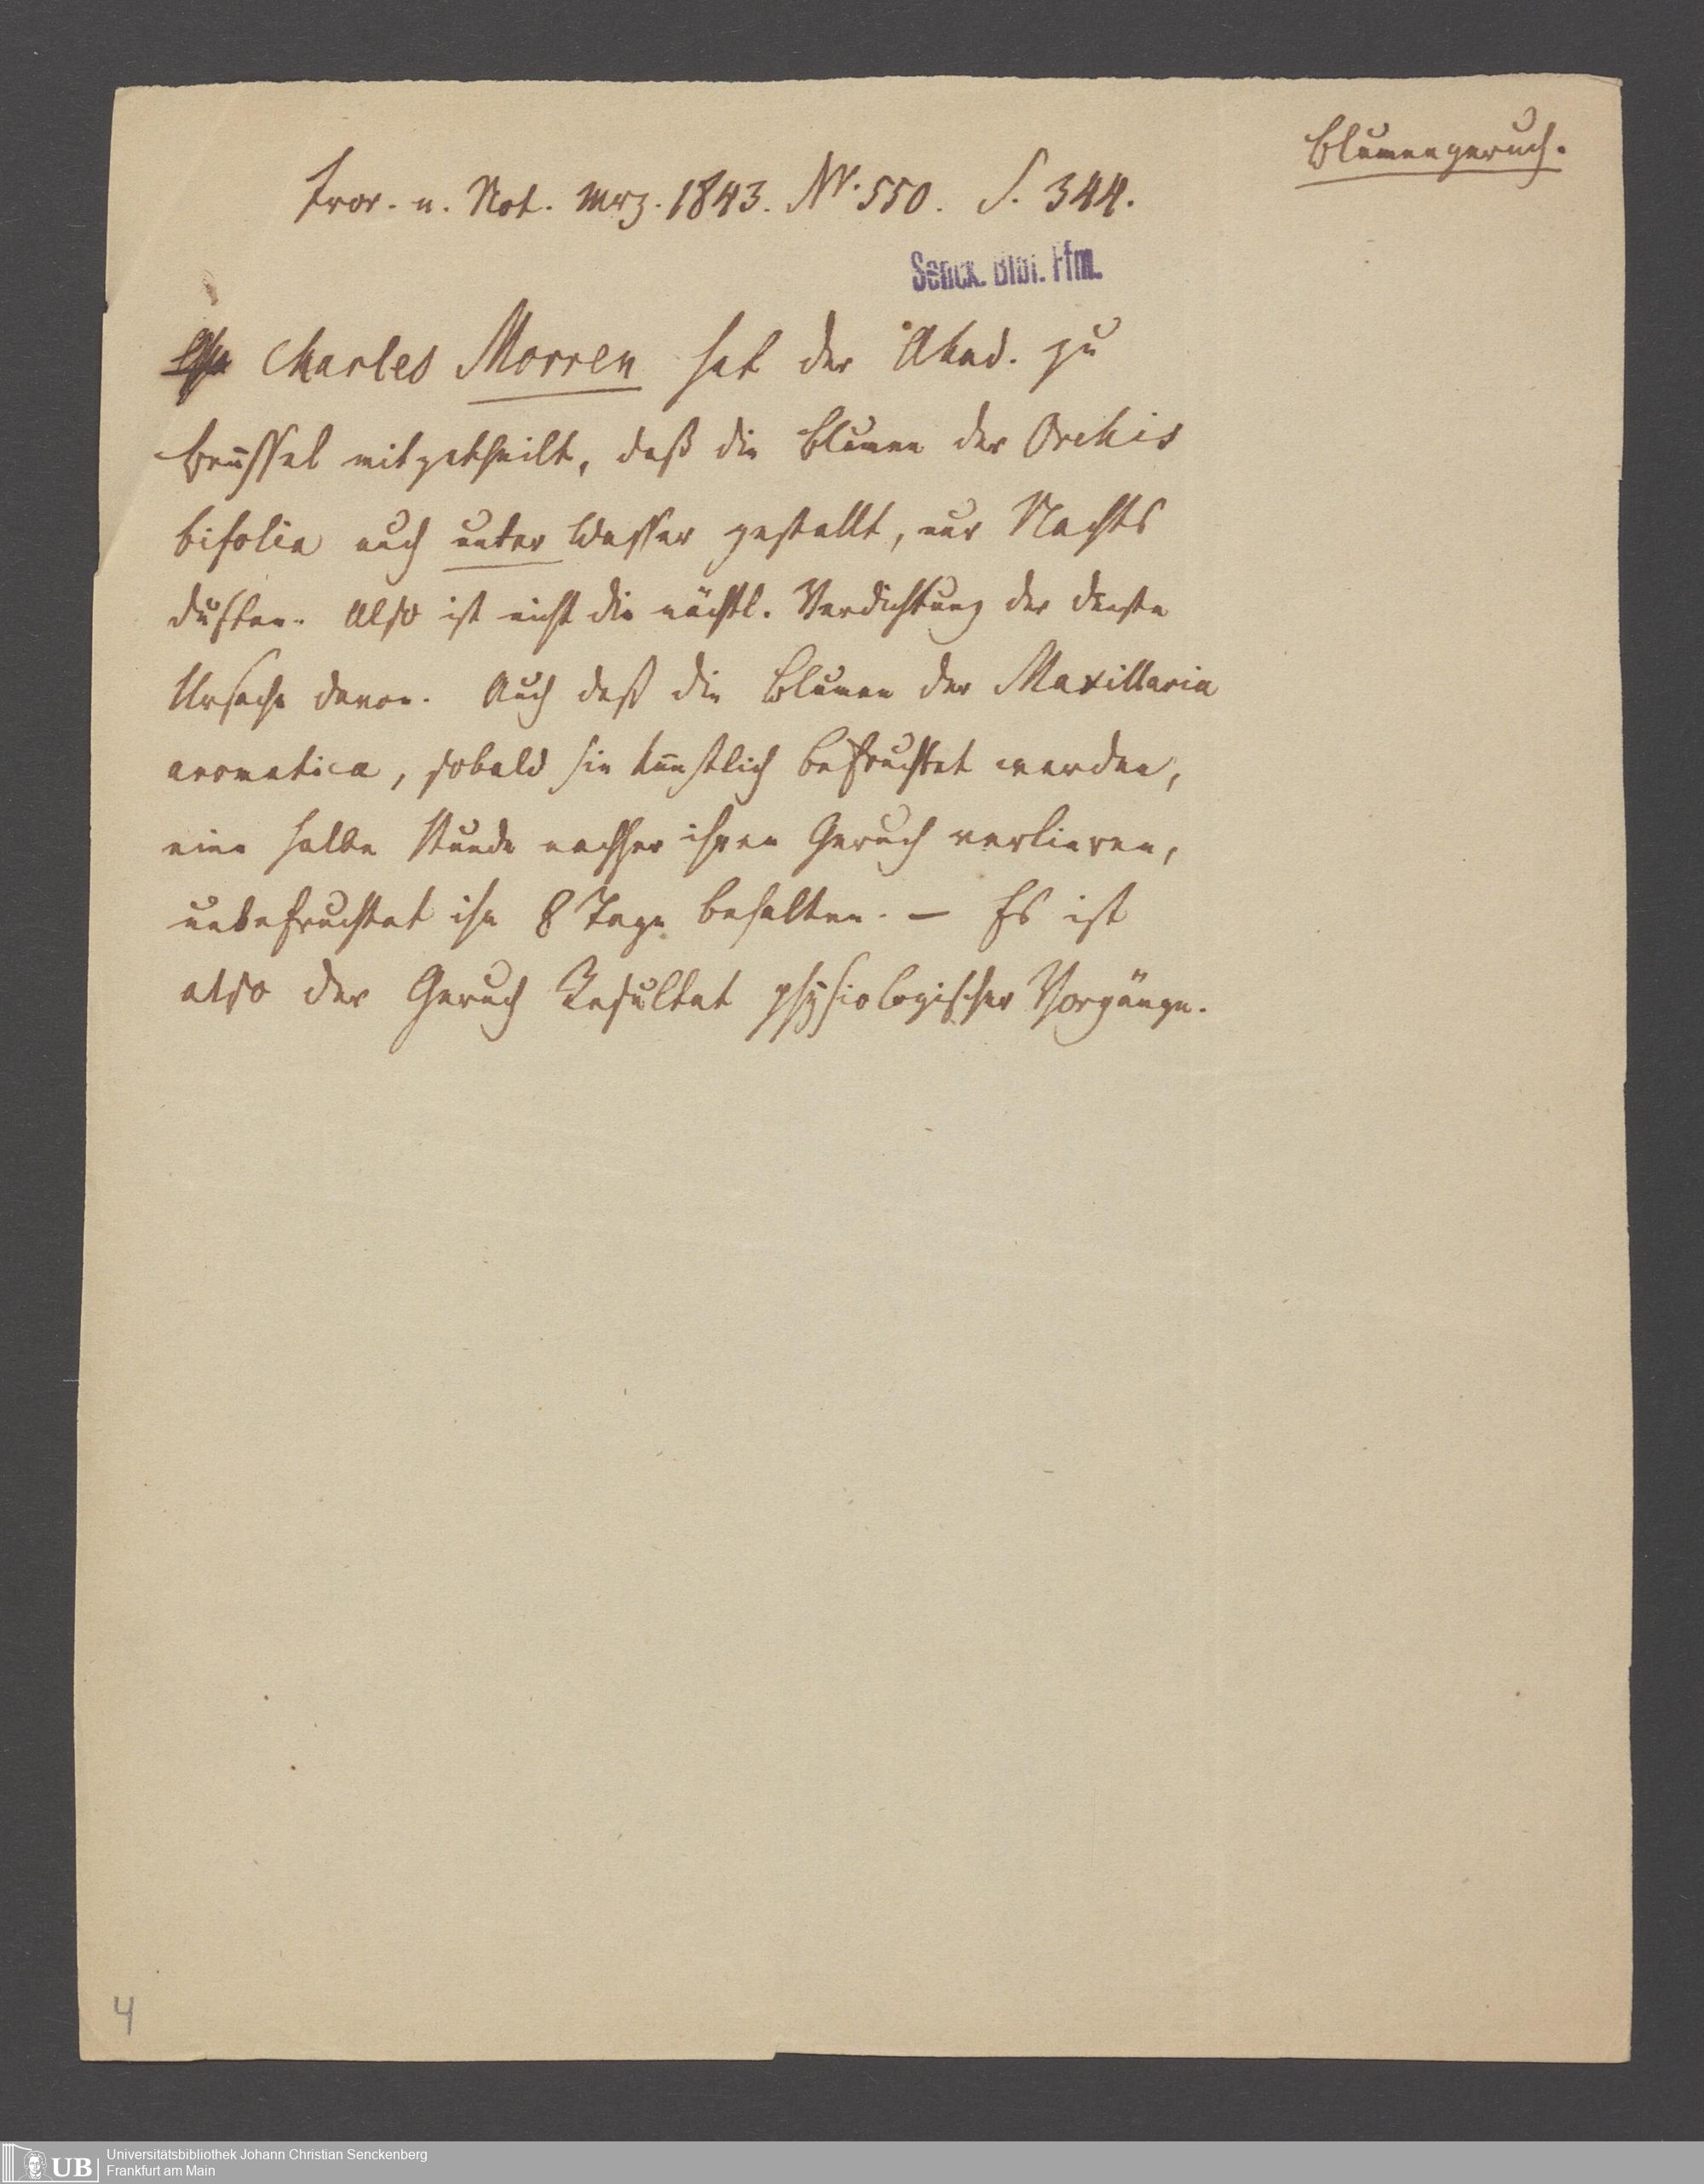 Blumengeruch.
Fror. n. Not. Mrz. 1843. Nr. 550. S. 344.
Senck. Bibl. Ffm.
Charles Morren hat der Akad. zu
Brüssel mitgetheilt, daß die Blumen der Orchis
bifolia auch unter Wasser gestellt, nur Nachts
duften. Also ist nicht die nächtl. Verdichtung der Dünste
Ursache davon. Auch daß die Blumen der Maxillaria
aromatica, sobald sie künstlich befruchtet werden,
eine halbe Stunde nachher ihren Geruch verlieren,
unbefruchtet ihn 8 Tage behalten. — Es ist
also der Geruch Resultat physiologischer Vorgänge.
4
UB
Universitätsbibliothek Johann Christian Senckenberg
Frankfurt am Main